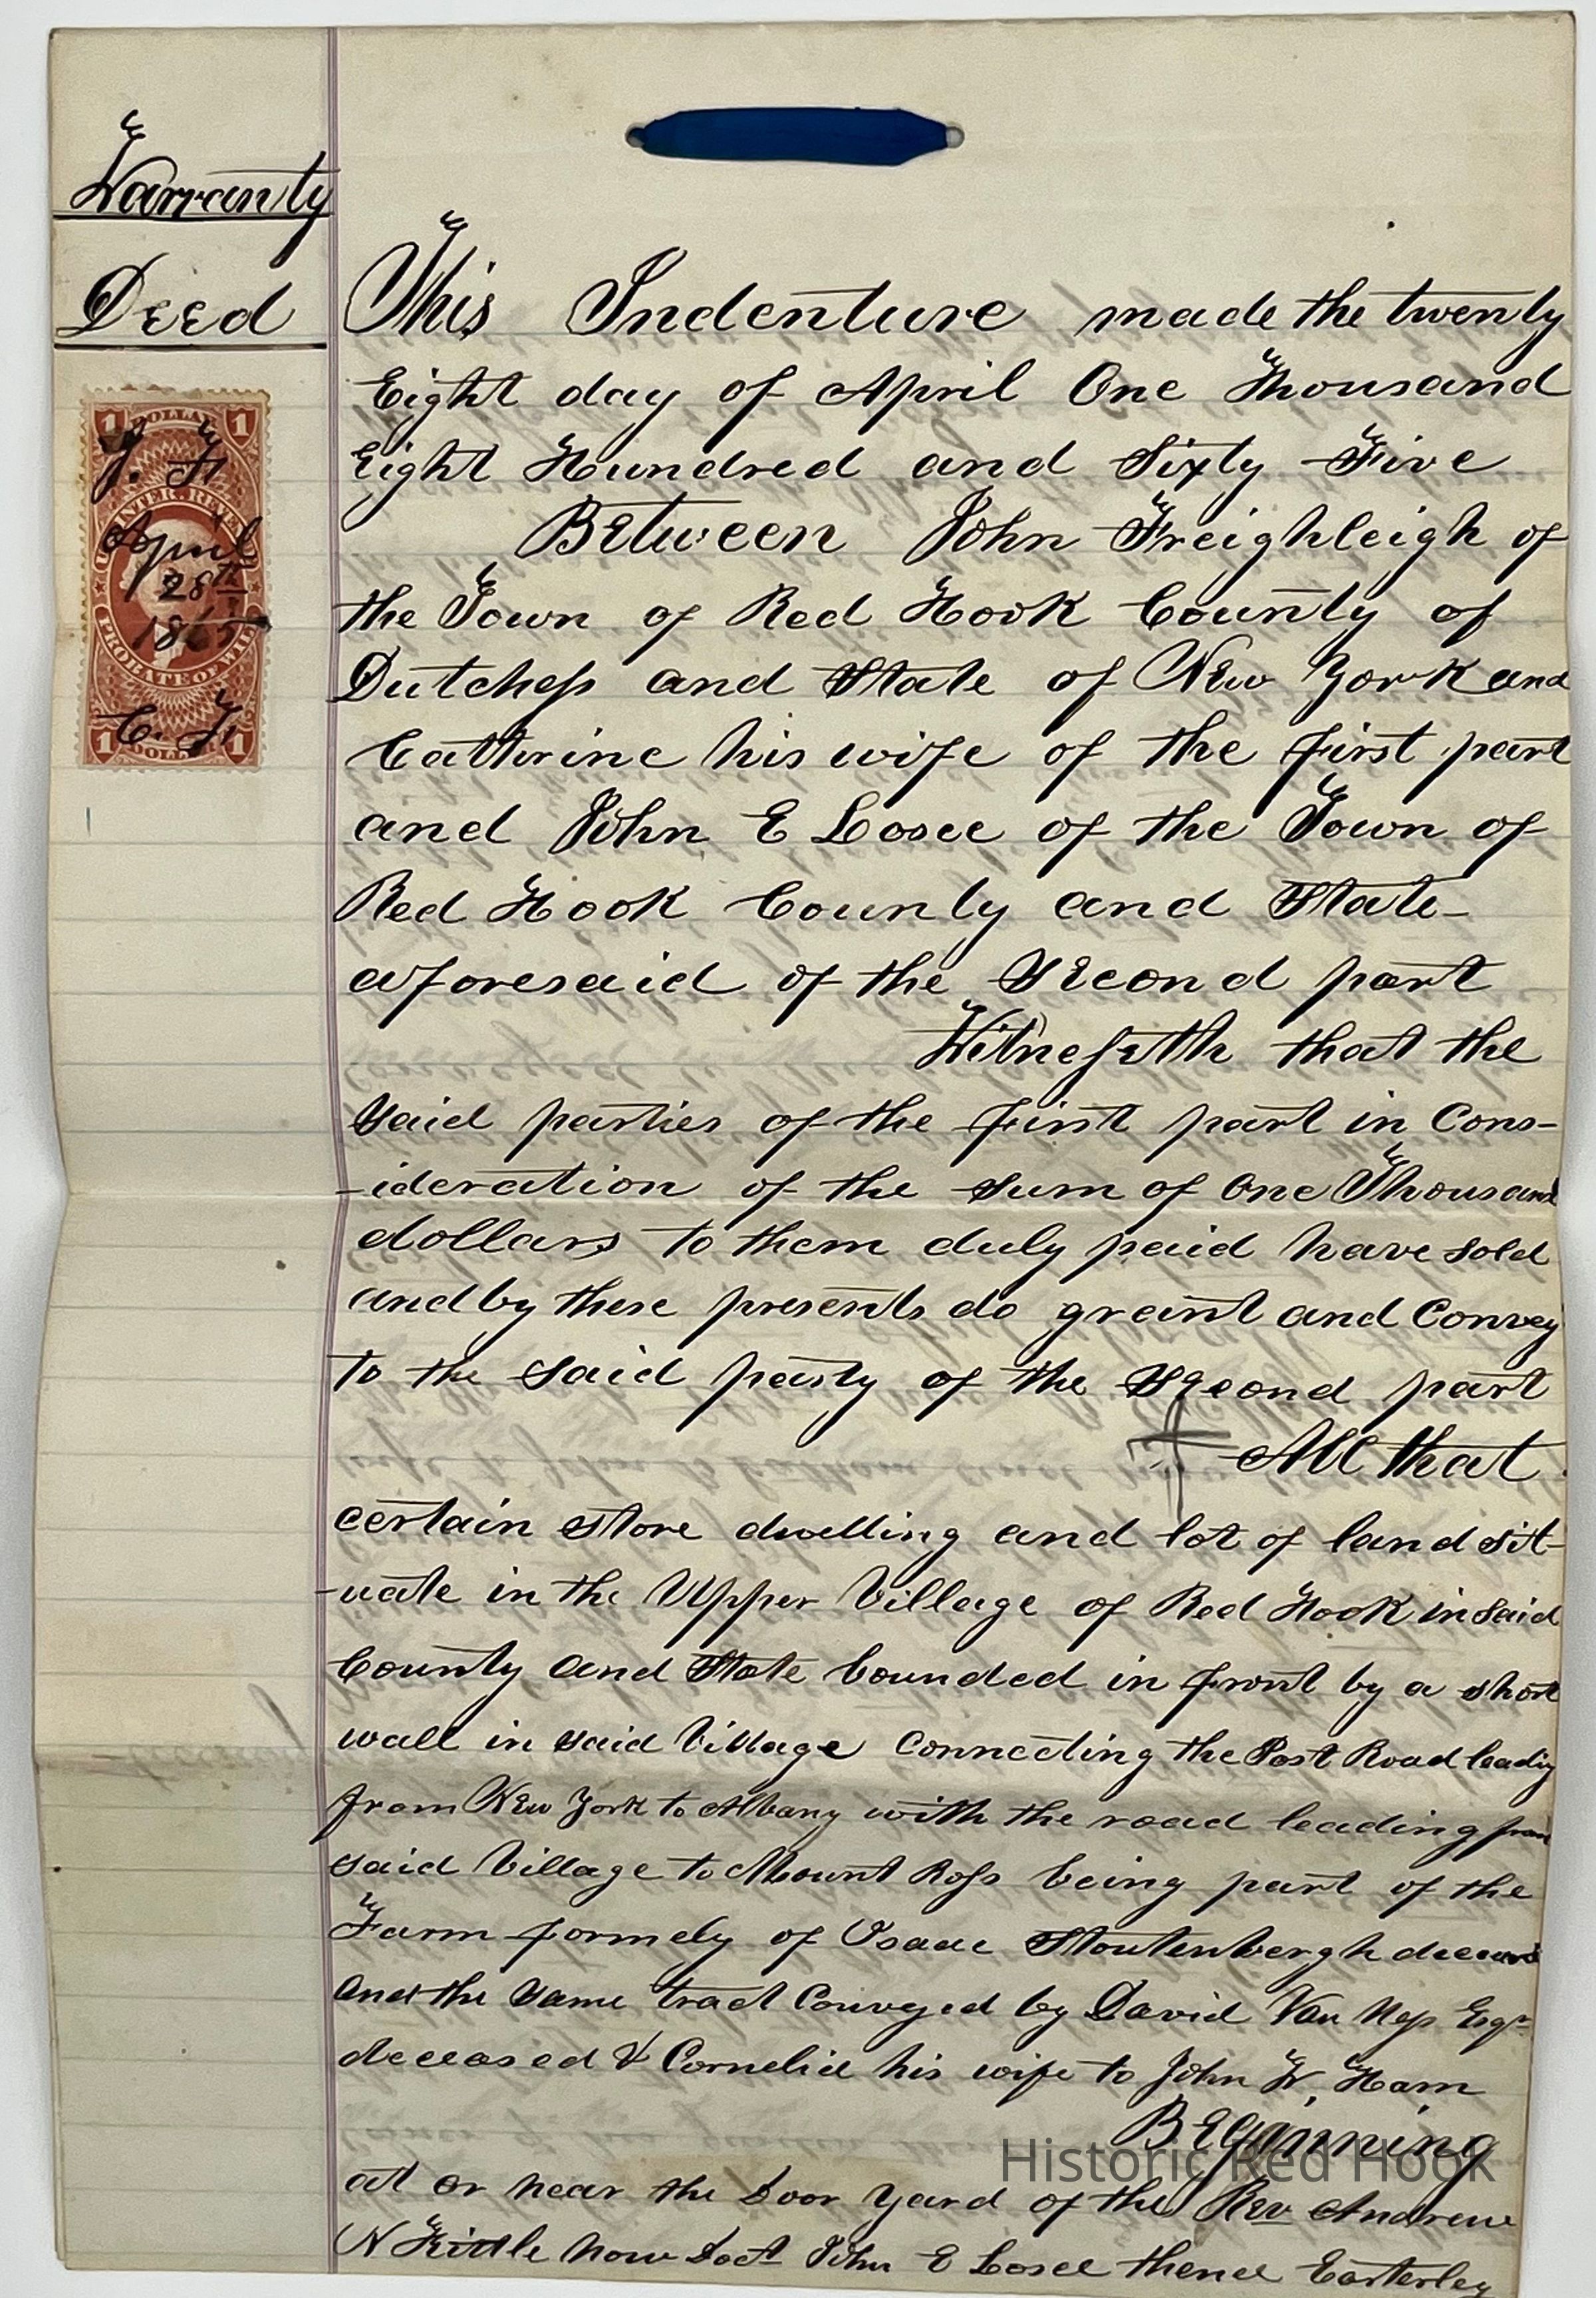 Warranty
Deed
1 DOLLAR 1
J. F.
INTER. REVENUE
April
28th
1865
PROBATE OF WILL
C. F.
1 DOLLAR 1
This Indenture made the twenty
Eight day of April One Thousand
Eight Hundred and Sixty Five
Between John Freighleigh of
the Town of Red Hook County of
Dutchess and State of New York and
Catherine his wife of the first part
and John E Losee of the Town of
Red Hook County and State
aforesaid of the Second part
Witnesseth that the
said parties of the first part in Cons-
-ideration of the sum of One Thousand
dollars to them duly paid have sold
and by these presents do grant and Convey
to the said party of the second part
All that
certain store dwelling and lot of land sit-
-uate in the Upper Village of Red Hook in said
County and State bounded in front by a short
wall in said Village Connecting the Post Road leadig
from New York to Albany with the road leading from
said Village to Mount Ross being part of the
Farm formely of Isaac Stoutenbergh deceased
and the same tract Conveyed by David Van Ness Esqr
deceased & Cornelia his wife to John W. Ham
Beginning
at or near the Door Yard of the Rev Andrew
N Kittle now Doct John E Losee thence Easterley
Historic Red Hook